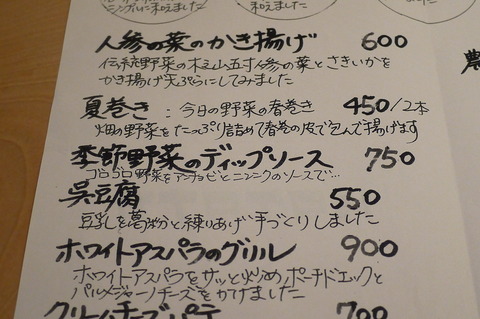 シンプルに和えました
和えました
ました
農
人参の葉のかき揚げ 600
伝統野菜の木之山五寸人参の葉とさきいかを
かき揚げ天ぷらにしてみました
夏巻き：今日の野菜の春巻き 450/2本
畑の野菜をたっぷり詰めて春巻の皮で包んで揚げます
季節野菜のディップソース 750
ゴロゴロ野菜をアンチョビとニンニクのソースで…
呉豆腐 550
豆乳を葛粉と練りあげ手づくりしました
ホワイトアスパラのグリル 900
ホワイトアスパラをサッと炒めポーチドエッグと
パルメジャーノチーズをかけました
クリームチーズパテ 700